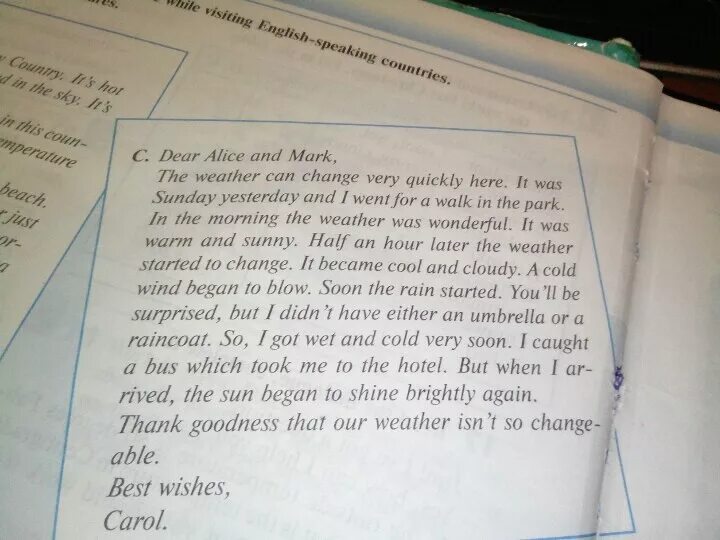 while visiting English-speaking countries.
Country. It's hot
in the sky. It's
in this coun-
temperature
beach.
just
C. Dear Alice and Mark,
The weather can change very quickly here. It was
Sunday yesterday and I went for a walk in the park.
In the morning the weather was wonderful. It was
warm and sunny. Half an hour later the weather
started to change. It became cool and cloudy. A cold
wind began to blow. Soon the rain started. You'll be
surprised, but I didn't have either an umbrella or a
raincoat. So, I got wet and cold very soon. I caught
a bus which took me to the hotel. But when I ar-
rived, the sun began to shine brightly again.
Thank goodness that our weather isn't so change-
able.
Best wishes,
Carol.